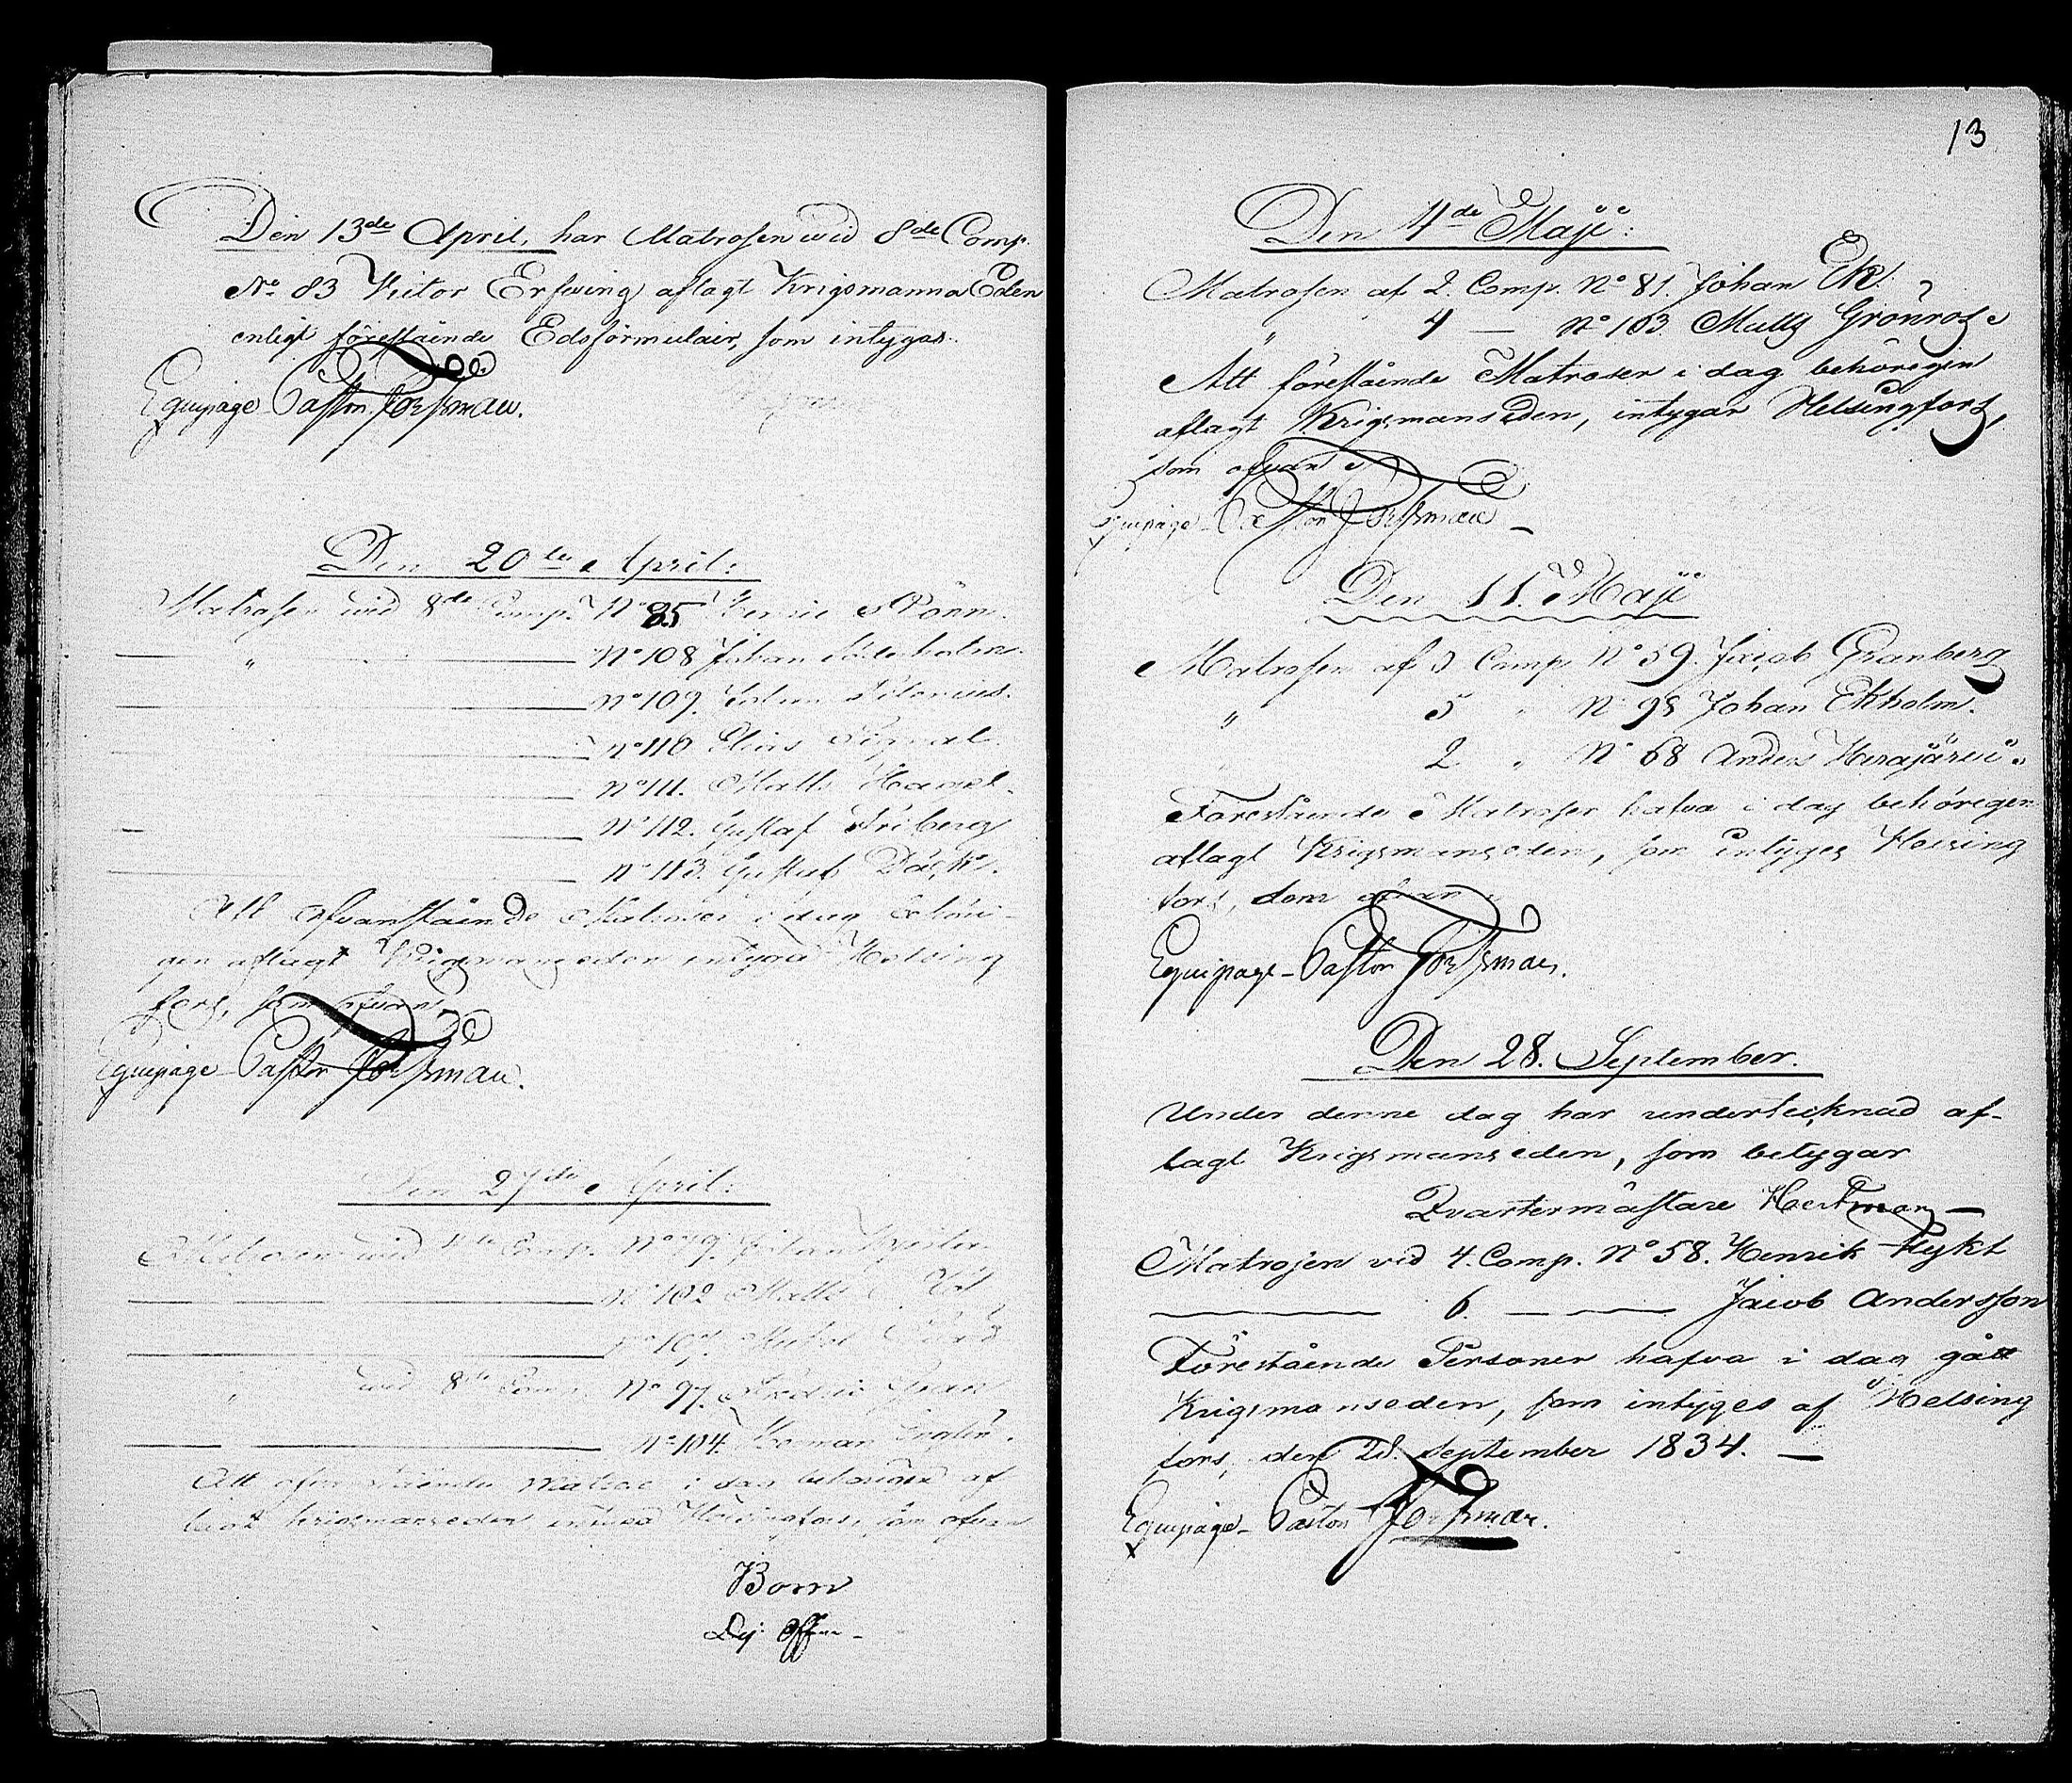 Den 13de April, har Matrosen wid 8de Comp.
No 83 Victor Erfwing aflagt Krigsmanna Eden
enligt förestående Edsformulair, som intygas.
Equipage-Pastor Forssman.
Den 20de April:
Matrosen wid 8de Comp. No 85 Rönn.
" No 108 Johan Söderholm.
No 109. Johan
No 110 Elias Signal.
No 111. Matts
No 112. Gustaf Friberg
No 113. Gustaf
Att ofvanstående Matroser i dag behöri-
gen aflagt Krigsmanseden intygar Helsing
fors, som ofvan.
Equipage-Pastor Forssman.
Den 27de April:
Matrosen wid Comp. No 79. Johan
No 102 Matts
No 107.
" wid 8de Comp. No 97.
No 104.
Att ofvanstående Matroser i dag behörigen af
lagt Krigsmanseden intygar Helsingfors, som ofvan
Born
Dej: Off
13
Den 4de Maji:
Matrosen af 2. Comp. No 81. Johan Ek.
" 4 — No 103. Matts Grönros
Att förestående Matroser i dag behörigen
aflagt Krigsmans Eden, intygar Helsingfors,
som ofvan
Equipage-Pastor Forssman —
Den 11. Maji
Matrosen af Comp. No 59. Jacob Granberg
" 5 " No 98 Johan Ekholm.
2 " No 68 Anders
Förestående Matroser hafva i dag behörigen
aflagt Krigsmanseden, som intyges Helsing
fors, som ofvan
Equipage-Pastor Forssman.
Den 28. September.
Under denne dag har undertecknad af-
lagt Krigsmanseden, som betygar
Qvartermästare Hertman —
Matrosen vid 4. Comp. No 58. Henrik Flykt
6. — Jacob Andersson
Förestående Personer hafva i dag gått
Krigsmanseden, som intyges af Helsing
fors, den 28. September 1834. —
Equipage-Pastor Forssman.